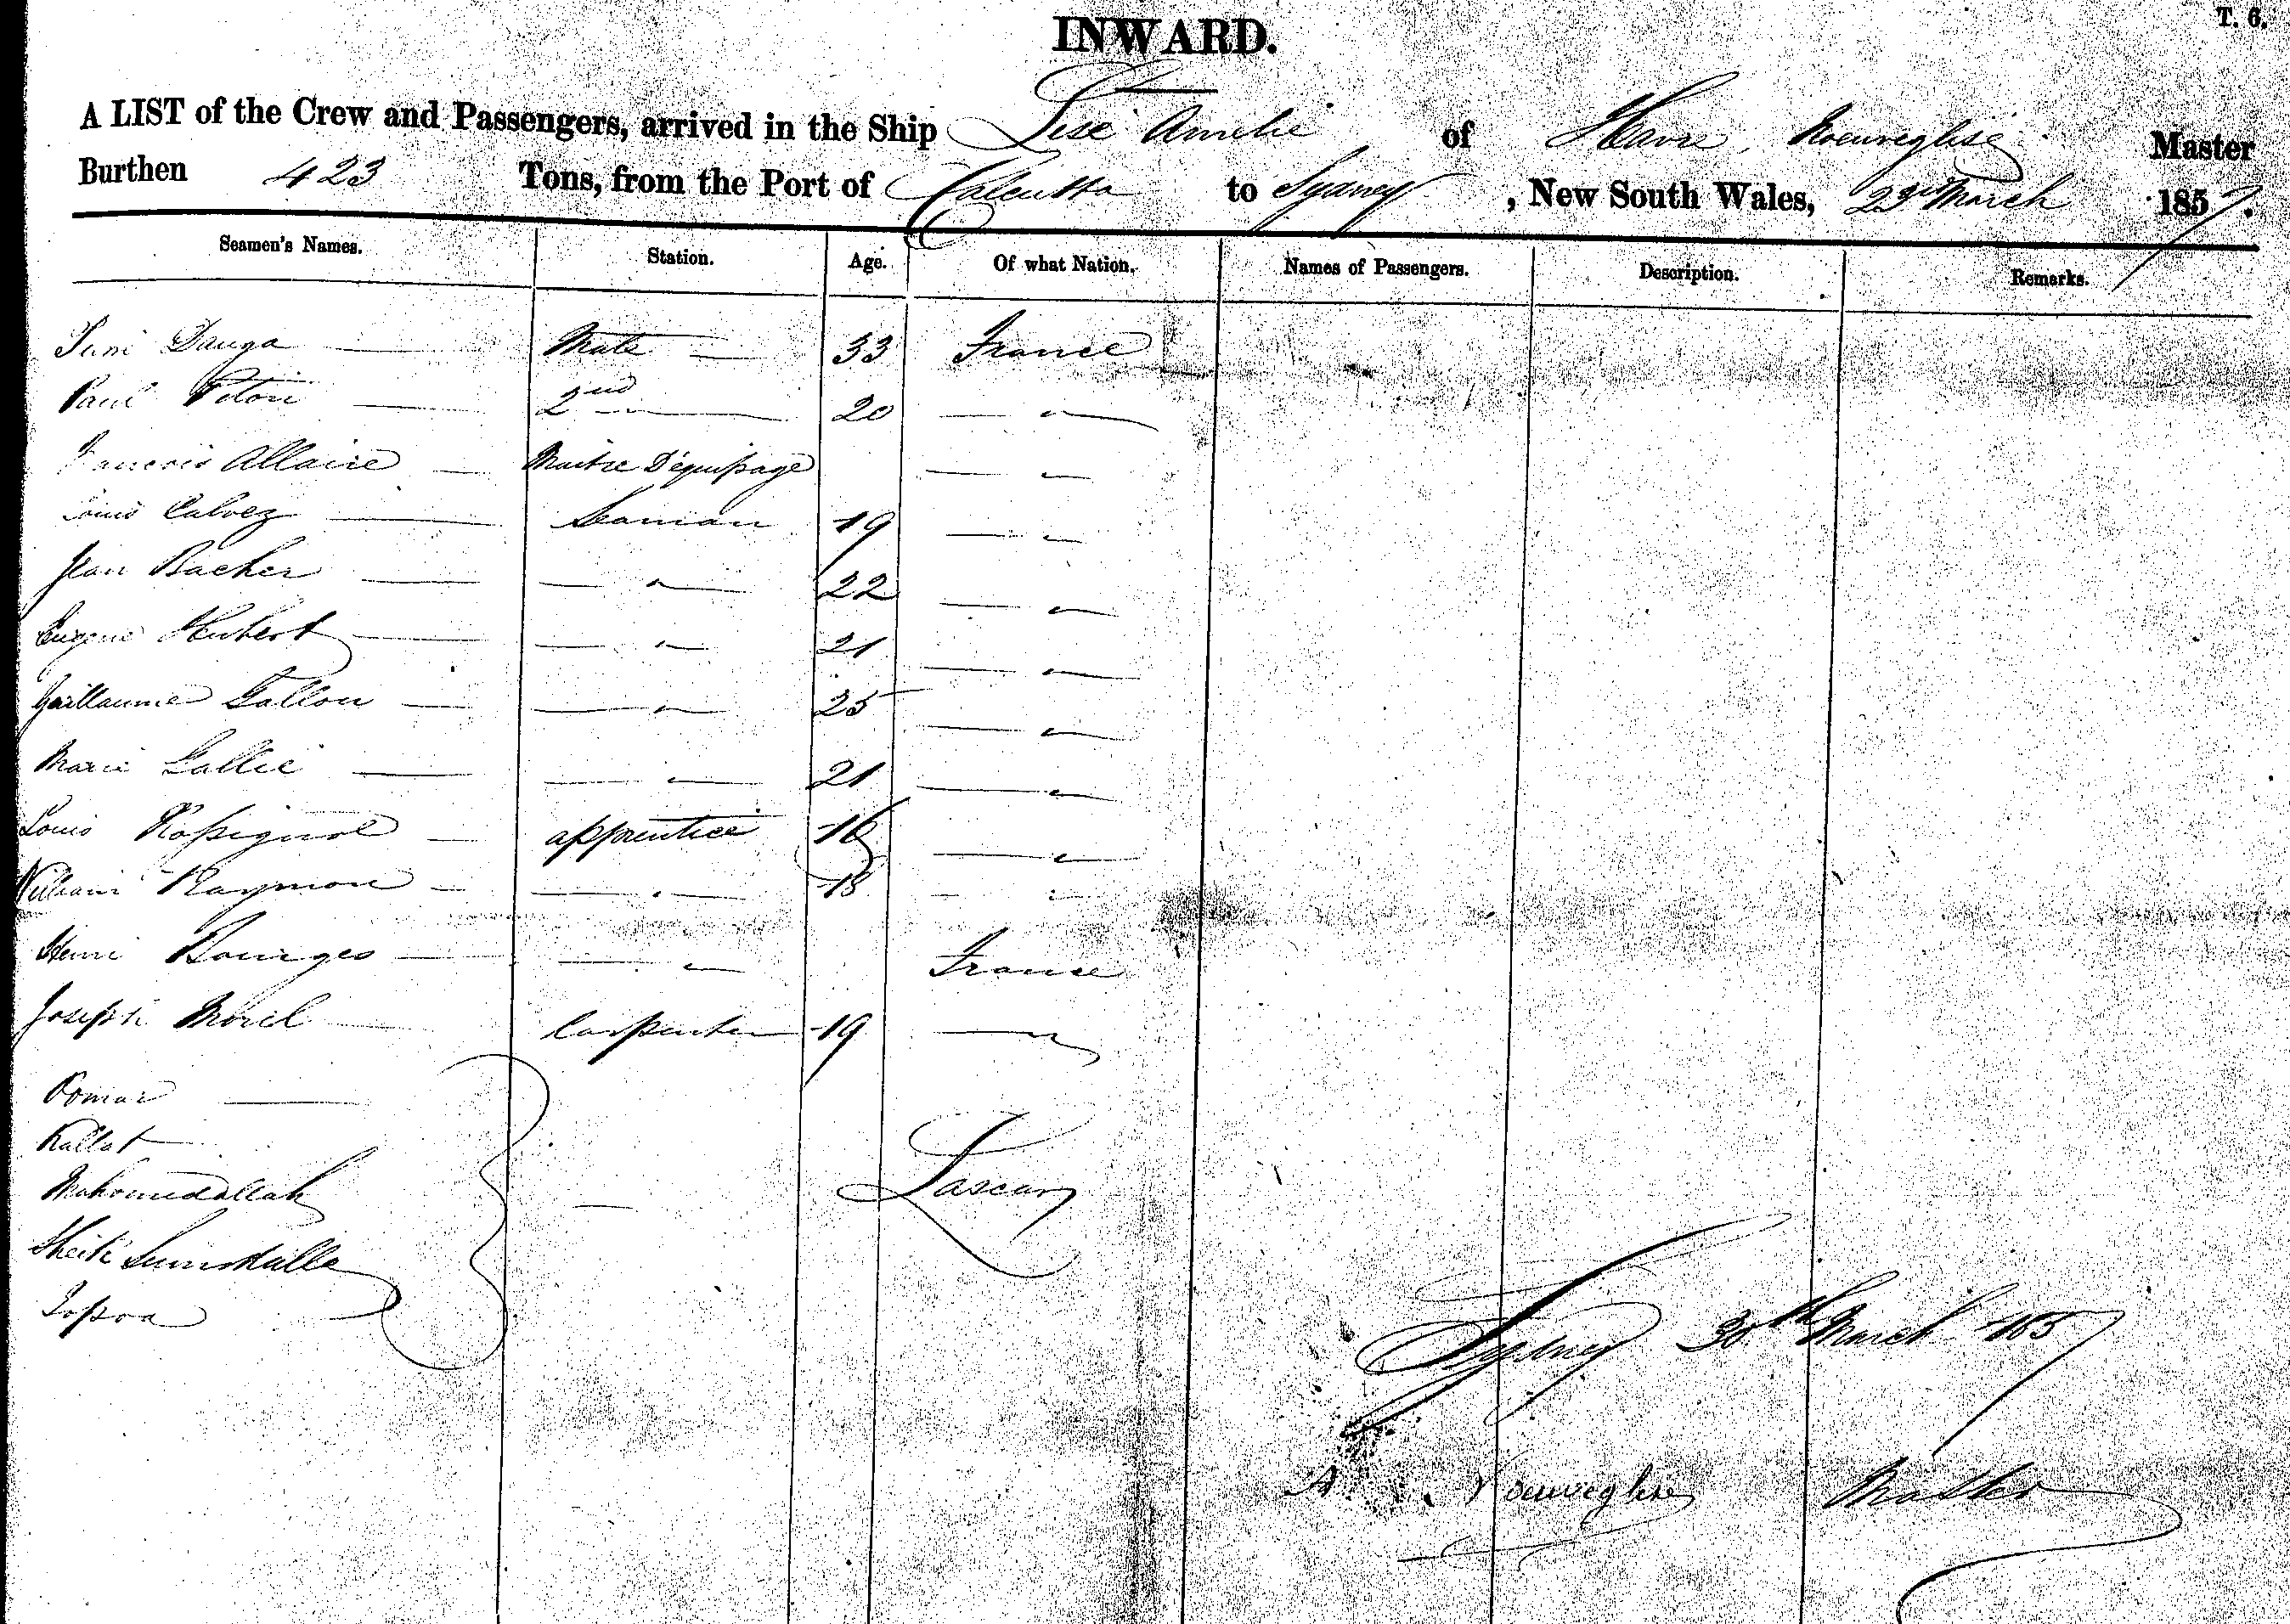 T. 6.
INWARD.
A LIST of the Crew and Passengers, arrived in the Ship Lise Amelie of Havre, Master
Burthen 423 Tons, from the Port of Calcutta to Sydney, New South Wales, 23rd March 1857.
Seamen's Names. Station. Age. Of what Nation. Names of Passengers. Description. Remarks.
Dauga — Mate — 33 France
Paul Piton — 2nd — " — 20 — " —
Francois Allaire — Maitre D'équipage — " —
Louis Calvez — Seaman 19 — " —
Jean Bacher — — " — 22 — " —
Eugene Hubert — — " — 21 — " —
Guillaume Gallon — — " — 25 — " —
Marie Gallic — — " — 21 — " —
Louis Rossignol — apprentice 16 — " —
William Raymon — — " — 18 — " —
Henri Bourges — — " — France
Joseph Morel — Carpenter 19 — "
Oomar —
Kallat —
Mahomedallah — Lascars
Sheik
Sydney 30th March 1857
A. Master